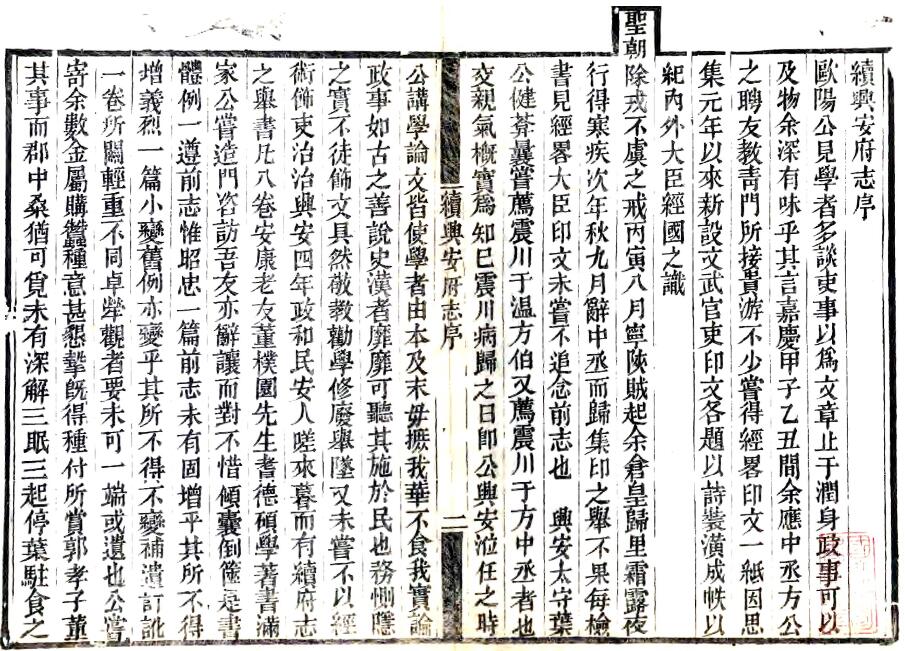 續興安府志序
歐陽公見學者多談吏事以爲文章止于潤身政事可以
及物余深有味乎其言嘉慶甲子乙丑間余應中丞方公
之聘友教青門所接貴游不少嘗得經畧印文一紙因思
集元年以來新設文武官吏印文各題以詩裝潢成帙以
紀內外大臣經國之識
聖朝除戎不虞之戒丙寅八月寧陝賊起余倉皇歸里霜露夜
行得寒疾次年秋九月辭中丞而歸集印之舉不果每檢
書見經畧大臣印文未嘗不追念前志也 興安太守葉
公健菴曩嘗薦震川于温方伯又薦震川于方中丞者也
交親氣槪實爲知已震川病歸之日即公興安涖任之時
續興安府志序
二
公講學論文皆使學者由本及末毋摭我華不食我實論
政事如古之善說史漢者靡靡可聽其施於民也務惻隱
之實不徒飾文具然敬教勸學修廢舉墜又未嘗不以經
術飾吏治治興安四年政和民安人嗟來暮而有續府志
之舉書凡八卷安康老友董樸園先生耆德碩學著書滿
家公嘗造門咨訪吾友亦辭讓而對不惜傾囊倒篋是書
體例一遵前志惟昭忠一篇前志未有固增乎其所不得
增義烈一篇小變舊例亦變乎其所不得不變補遺訂訛
一卷所關輕重不同卓犖觀者要未可一端或遺也公嘗
寄余數金屬購蠶種意甚懇摯旣得種付所賞郭孝子董
其事而郡中桑猶可覓未有深解三眠三起停葉駐食之